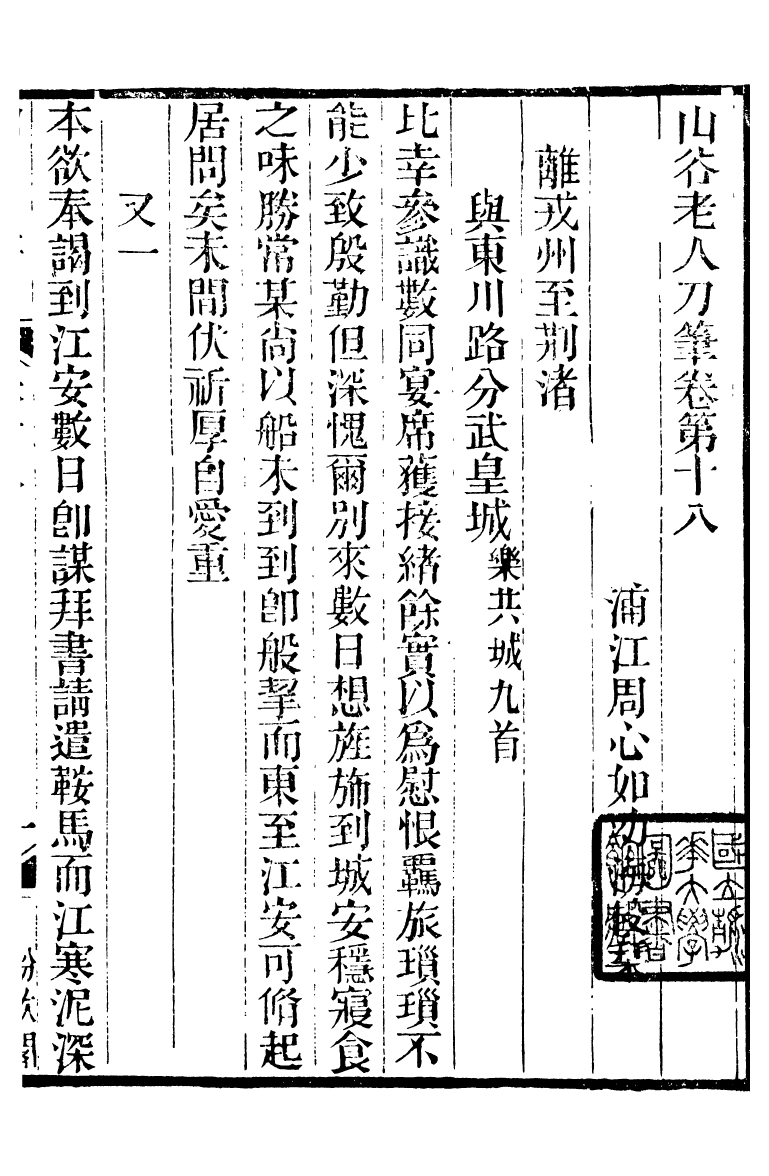 山谷老人刀筆卷第十八
浦江周心如
離戎州至荆渚
與東川路分武皇城樂共城九首
比幸參識數同宴席獲接緒餘實以爲慰恨羈旅瑣瑣不
能少致殷勤但深愧爾別來數日想旌斾到城安穩寢食
之味勝常某尚以船未到到卽般挈而東至江安可脩起
居問矣未間伏祈厚自愛重
又一
本欲奉謁到江安數日卽謀拜書請遣鞍馬而江寒泥深